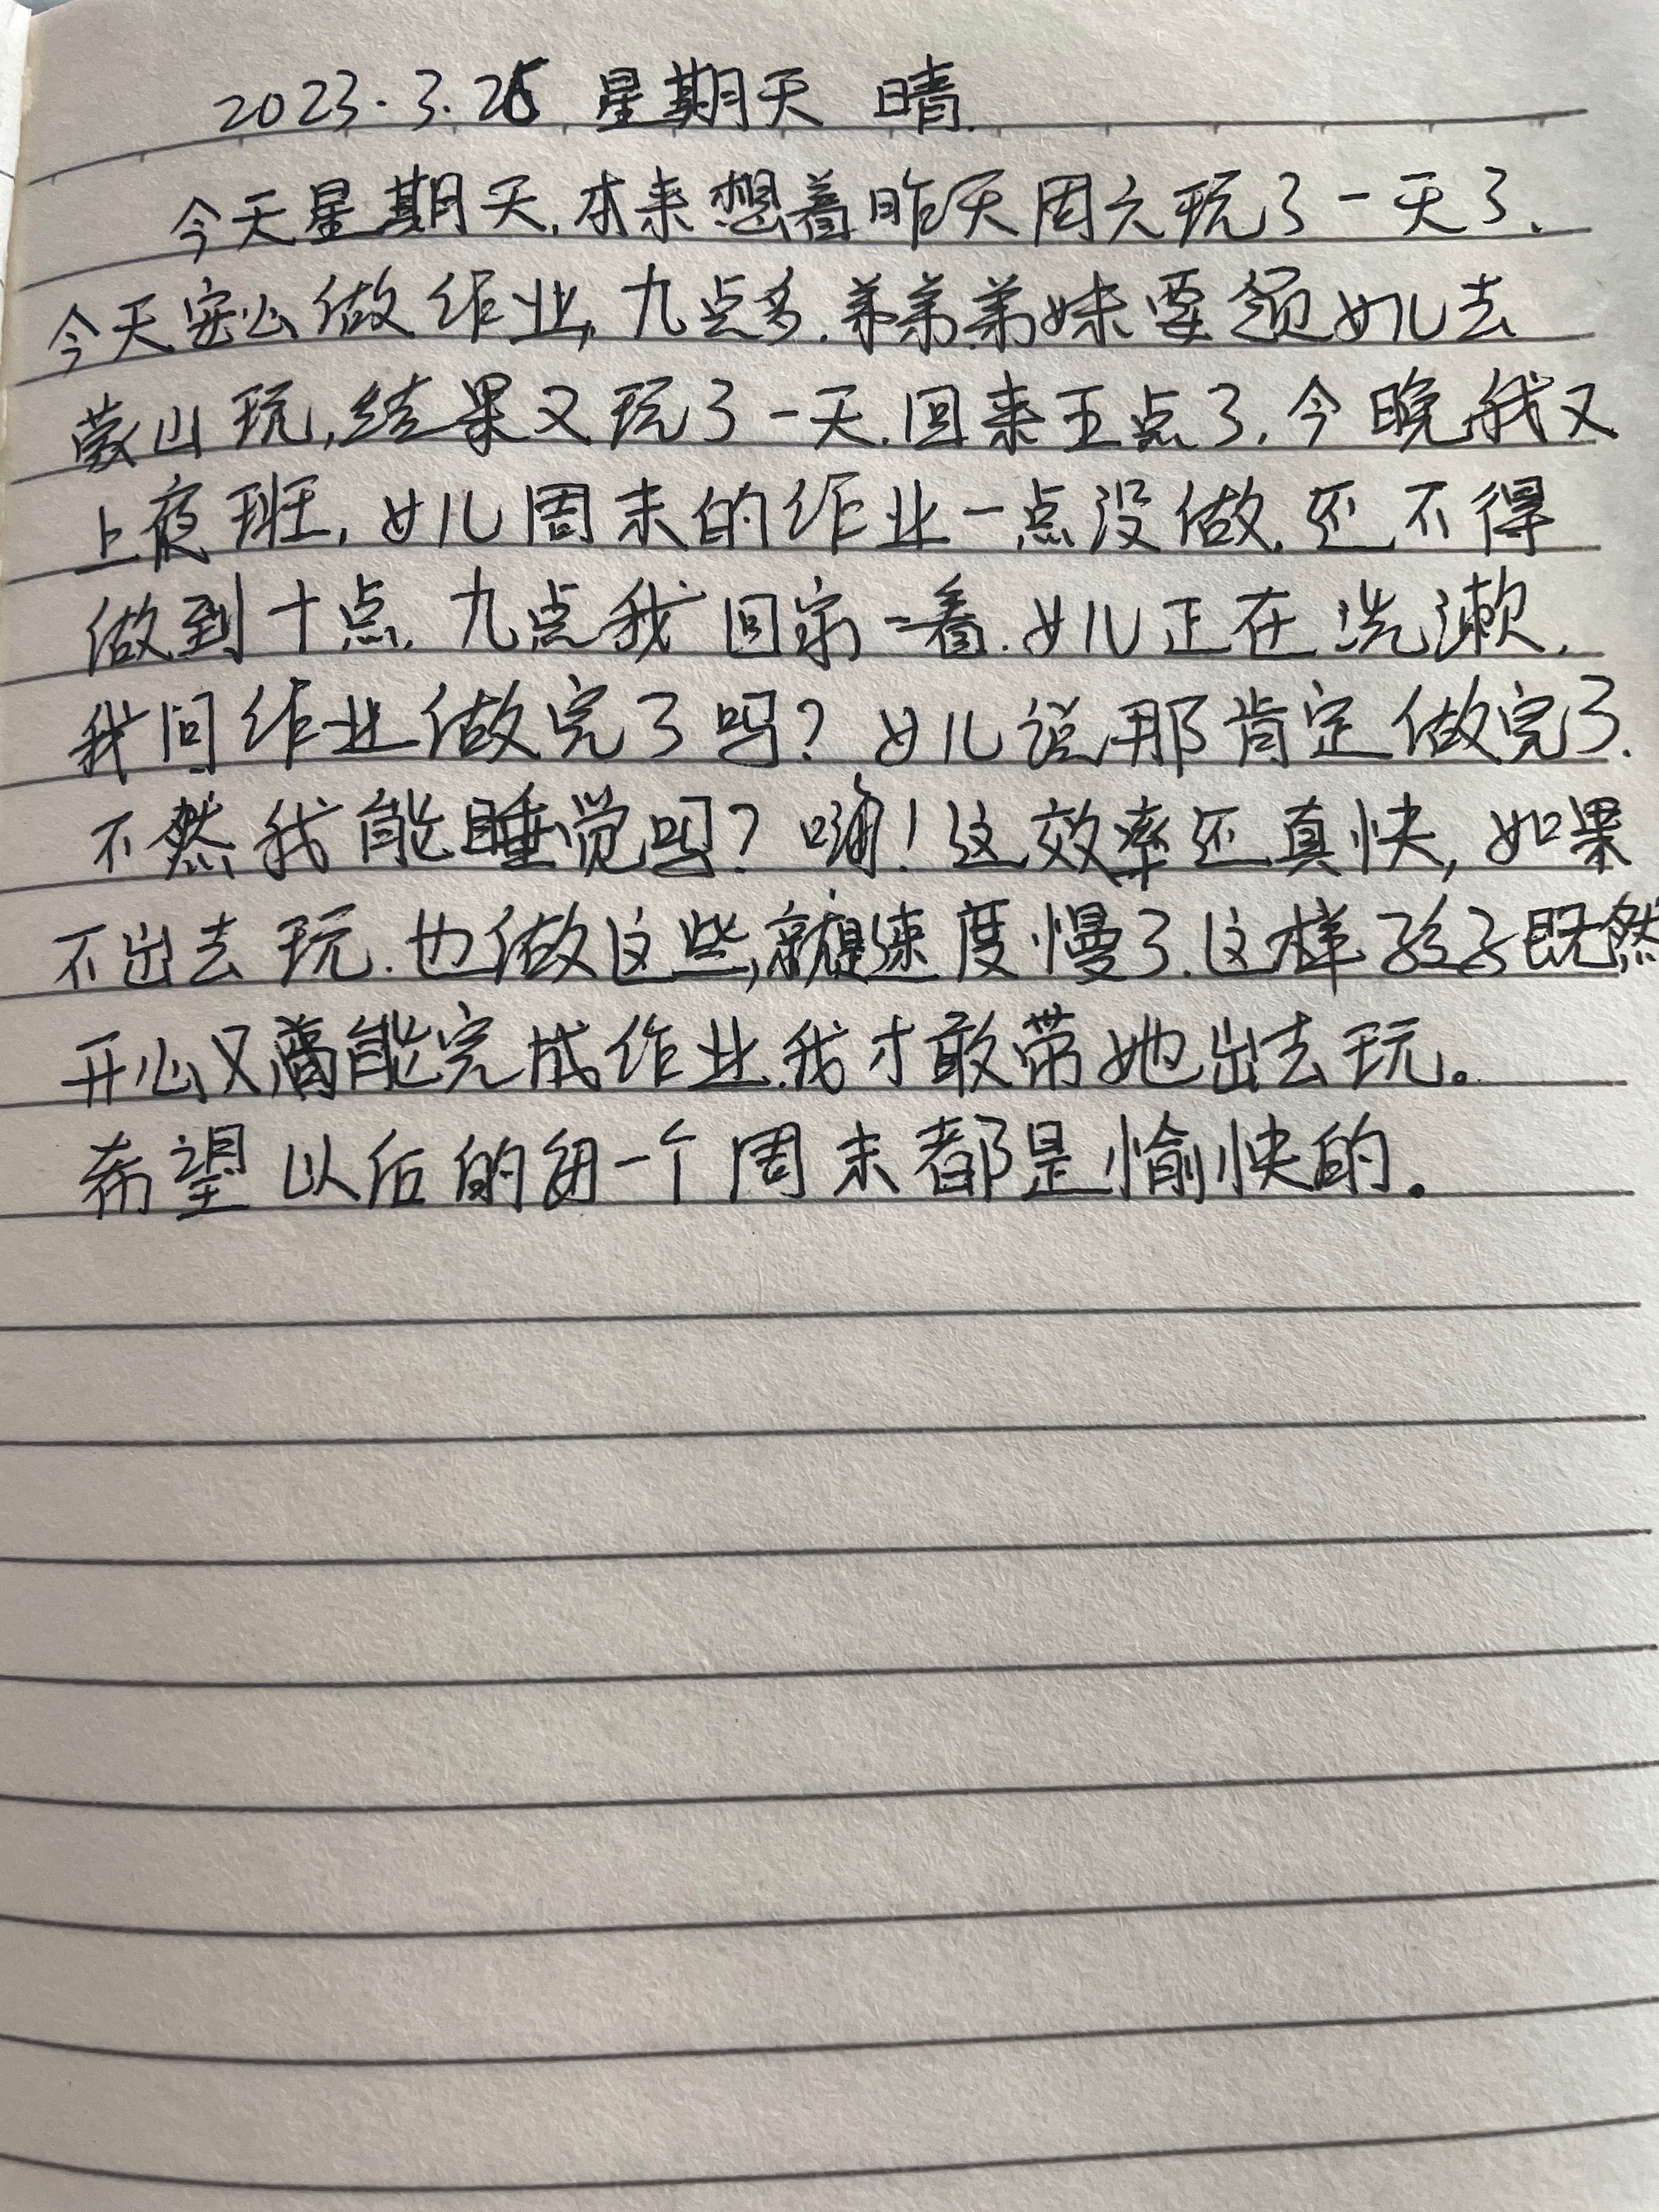 2023.3.26 星期天 晴.
今天星期天,本来想着昨天周六玩了一天了、
今天安心做作业,九点多.弟弟弟妹要领女儿去
蒙山玩,结果又玩了一天.回来五点了.今晚我又
上夜班,女儿周末的作业一点没做.还不得
做到十点.九点我回家一看.女儿正在洗漱.
我问作业做完了吗?女儿说那肯定做完了.
不然我能睡觉吗?嗬!这效率还真快,如果
不出去玩.也做这些,就是速度慢了.这样孩子既然
开心又能完成作业.我才敢带她出去玩。
希望以后的每一个周末都是愉快的.